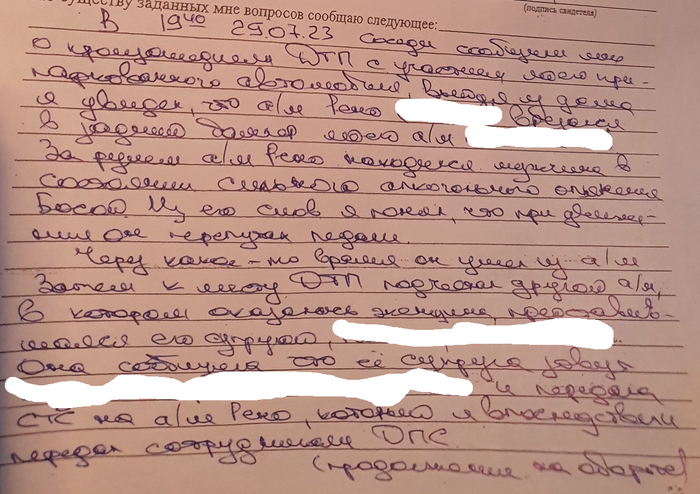 существу заданных мне вопросов сообщаю следующее:
(подпись свидетеля)
В 19⁴⁰ 29.07.23 соседи сообщили мне
о произошедшем ДТП с участием моего при-
паркованного автомобиля, выйдя из дома
я увидел, что а/м Рено врезался
в задний бампер моего а/м
За рулем а/м Рено находился мужчина в
состоянии сильного алкогольного опьянения
Босой. Из его слов я понял, что при движе-
нии он перепутал педали.
Через какое-то время он ушел из а/м
Затем к месту ДТП подъехал другой а/м,
в котором оказалась женщина, представив-
шаяся его супругой,
Она сообщила что её супруга зовут
и передала
СТС на а/м Рено, который я впоследствии
передал сотрудникам ДПС
(продолжение на обороте)